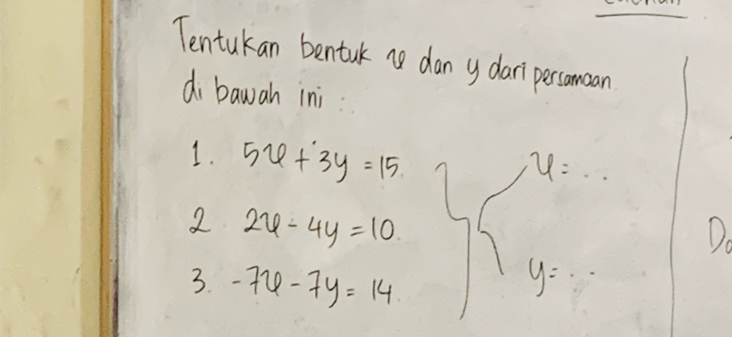 Tentukan bentuk x dan y dari persamaan
di bawah ini :
1. 5x + 3y = 15.
2. 2x - 4y = 10.
3. -7x - 7y = 14.
x = ...
y = ...